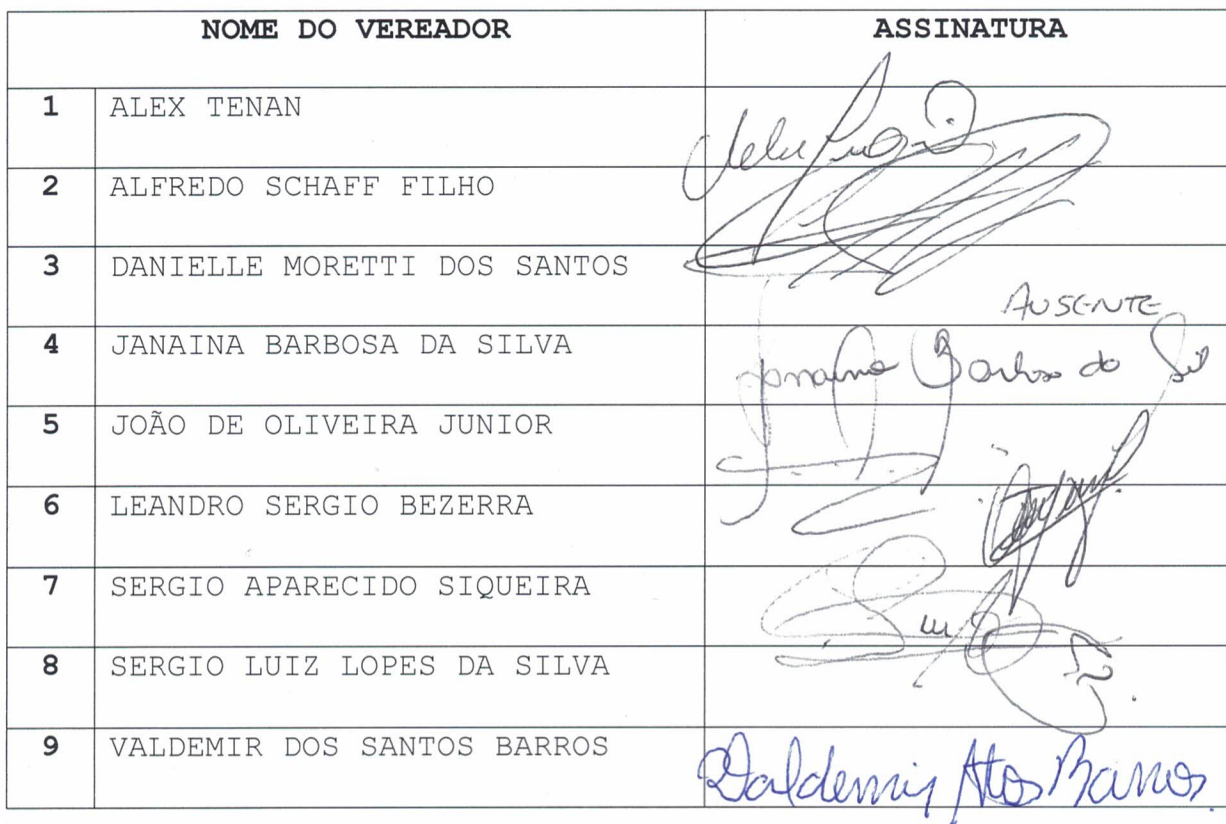 NOME DO VEREADOR ASSINATURA
1 ALEX TENAN
2 ALFREDO SCHAFF FILHO
3 DANIELLE MORETTI DOS SANTOS AUSENTE
4 JANAINA BARBOSA DA SILVA Janaina Barbosa da Sil
5 JOÃO DE OLIVEIRA JUNIOR
6 LEANDRO SERGIO BEZERRA
7 SERGIO APARECIDO SIQUEIRA
8 SERGIO LUIZ LOPES DA SILVA
9 VALDEMIR DOS SANTOS BARROS Valdemir Barros